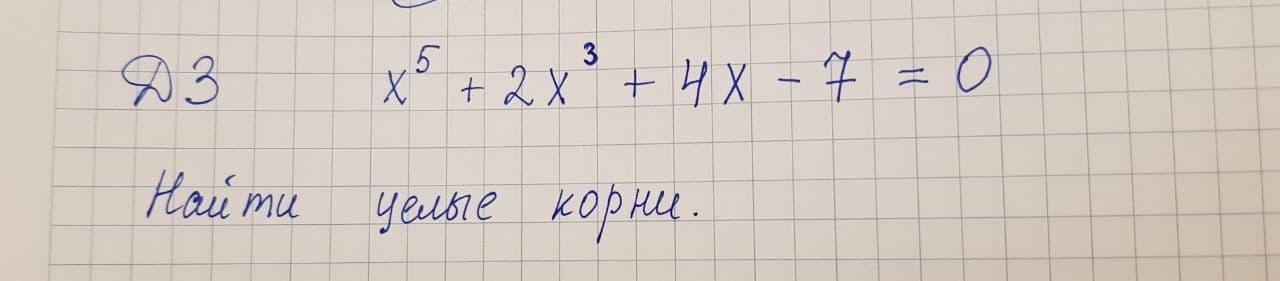 ДЗ x⁵ + 2x³ + 4x - 7 = 0
Найти целые корни.